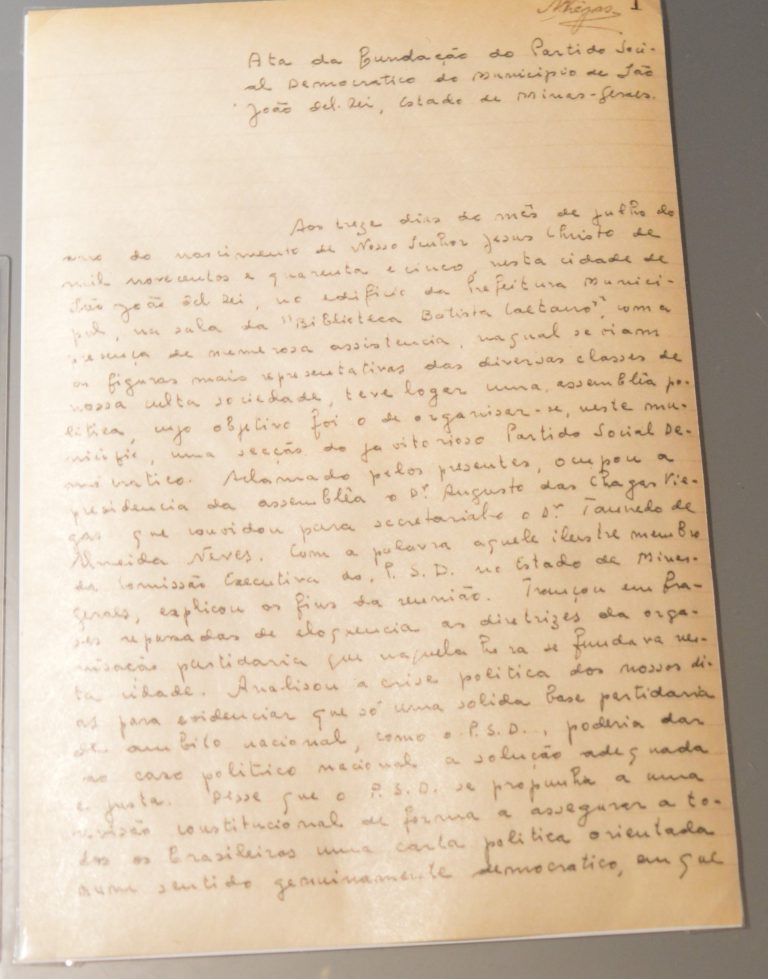 Viegas 1
Ata da Fundação do Partido Soci-
al Democratico do Municipio de São
João del-Rei, Estado de Minas-Geraes.
Aos treze dias do mês de julho do
ano do nascimento de Nosso Senhor Jesus Christo de
mil novecentos e quarenta e cinco, nesta cidade de
São João del Rei, no edificio da Prefeitura Munici-
pal, na sala da "Biblioteca Batista Caetano", com a
presença de numerosa assistencia, na qual se viam
as figuras mais representativas das diversas classes de
nossa culta sociedade, teve logar uma assembléa po-
litica, cujo objetivo foi o de organisar-se, neste mu-
nicipio, uma secção do já vitorioso Partido Social De-
mocratico. Aclamado pelos presentes, ocupou a
presidencia da assembléa o Dr. Augusto das Chagas Vie-
gas que convidou para secretarial-o o Dr. Tancredo de
Almeida Neves. Com a palavra aquele ilustre membro
da Comissão Executiva do P. S. D. no Estado de Minas-
geraes, explicou os fins da reunião. Traçou em fra-
ses repassadas de eloquencia as diretrizes da orga-
nisação partidaria que naquela hora se fundava nes-
ta cidade. Analisou a crise politica dos nossos di-
as para evidenciar que só uma solida base partidaria
de ambito nacional, como o P.S.D., poderia dar
ao caso politico nacional a solução adequada
e justa. Disse que o P. S. D. se propunha a uma
revisão constitucional de forma a assegurar a to-
dos os brasileiros uma carta politica orientada
num sentido genuinamente democratico, em que